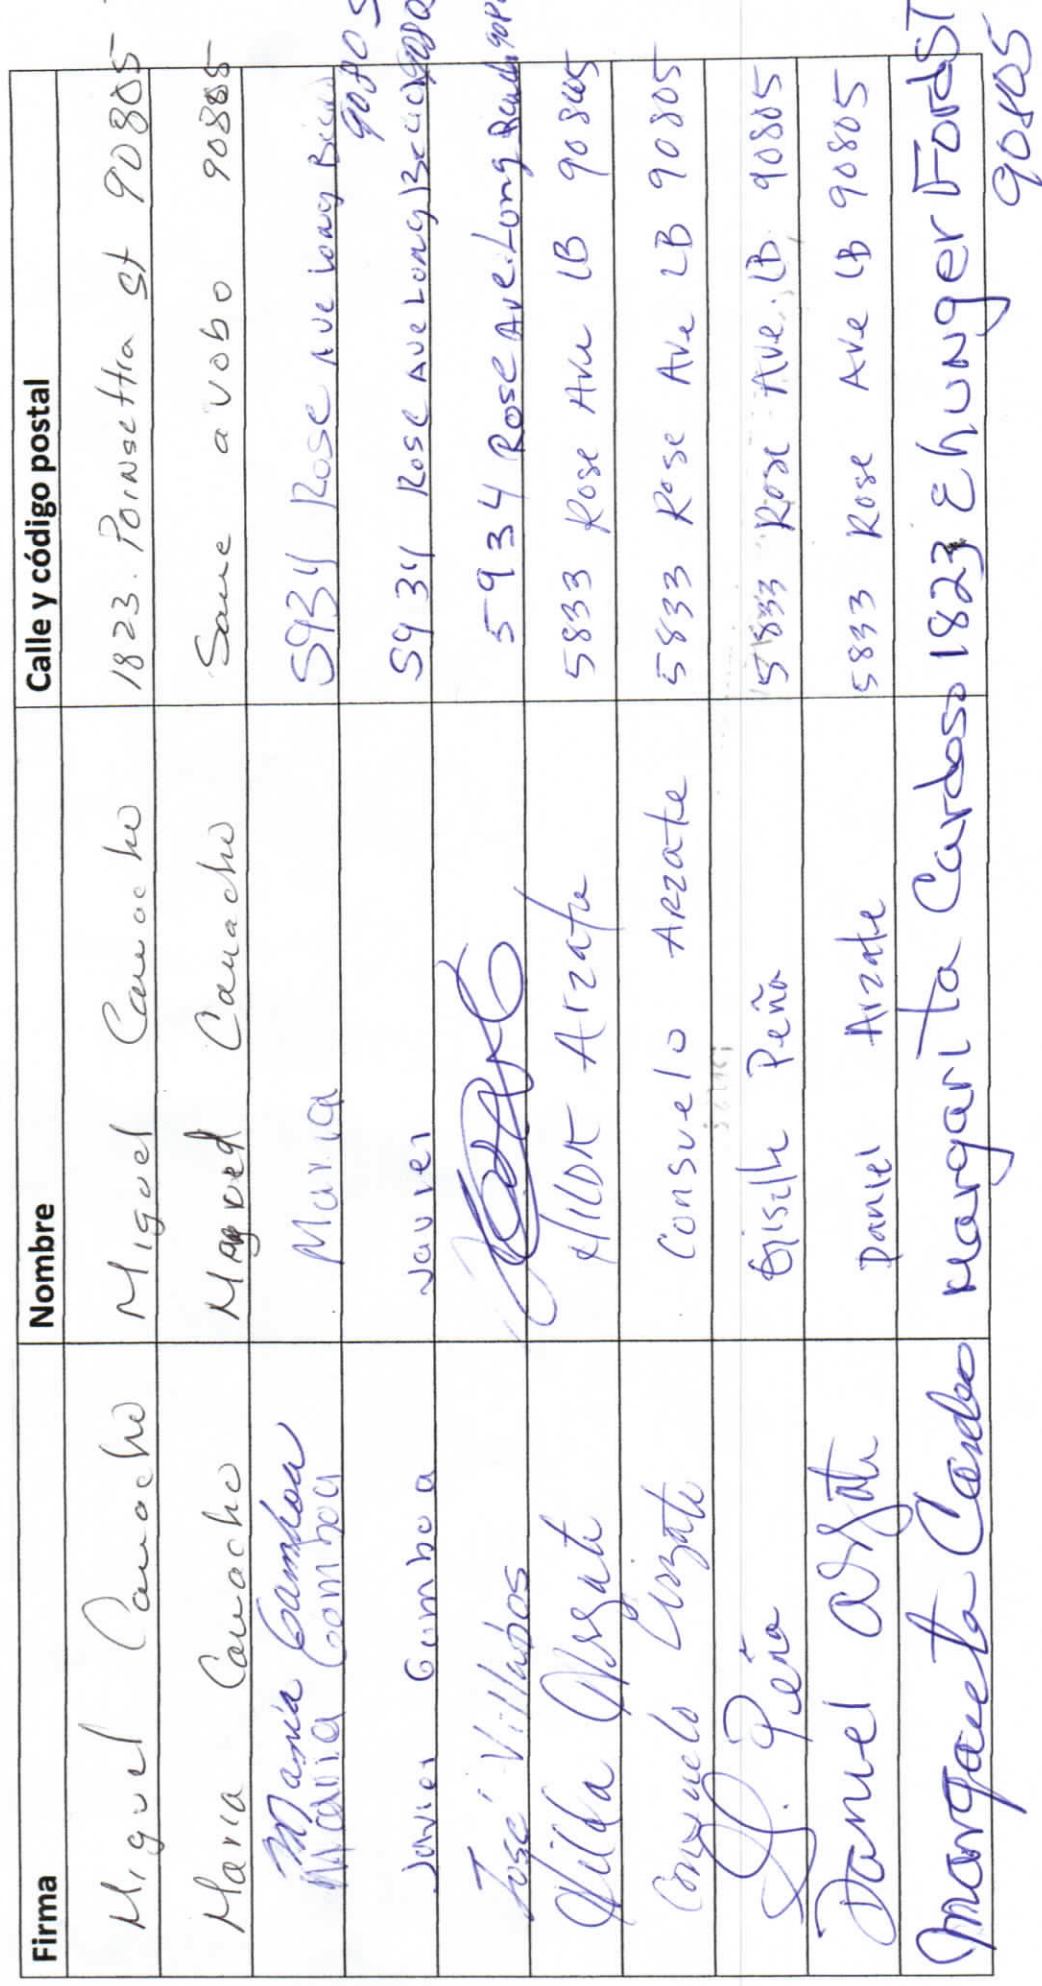 Firma Nombre Calle y código postal
Miguel Camacho Miguel Camacho 1823. Poinsettia St 90805
Maria Camacho Miguel Camacho Same avobo 90805
Maria Gamboa
Maria Gamboa Maria 5934 Rose Ave Long Beach
90805
Javier Gamboa Javier 5934 Rose Ave Long Beach
José Villalobos 5934 Rose Ave. Long Beach
Hilda Arzate Hilda Arzate 5833 Rose Ave LB 90805
Consuelo Arzate Consuelo Arzate 5833 Rose Ave LB 90805
G. Peña Giselle Peña 5833 Rose Ave. LB. 90805
Daniel Arzate Daniel Arzate 5833 Rose Ave LB 90805
Margarita Cardoso Margarita Cardoso 1823 E hunger Ford ST
90805